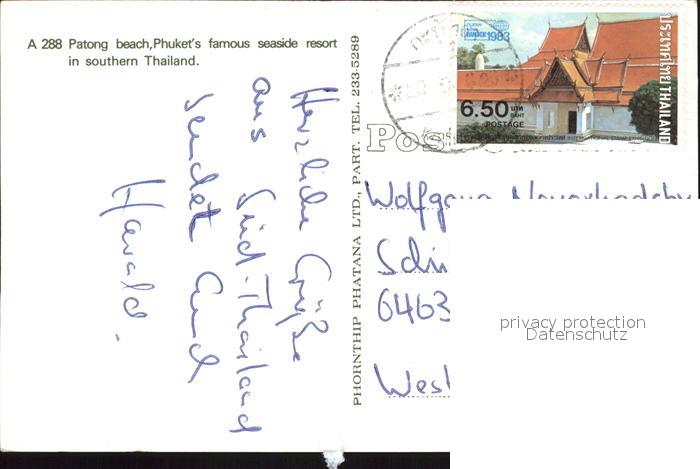 A 288 Patong beach,Phuket's famous seaside resort
in southern Thailand.
Herzliche Grüße
aus Süd-Thailand
sendet Euch
Harald.
PHORNTHIP PHATANA LTD., PART. TEL. 233-5289
1983
6.50 บาท
BAHT
POSTAGE
ประเทศไทย THAILAND
Wolfgang
6463
privacy protection
Datenschutz